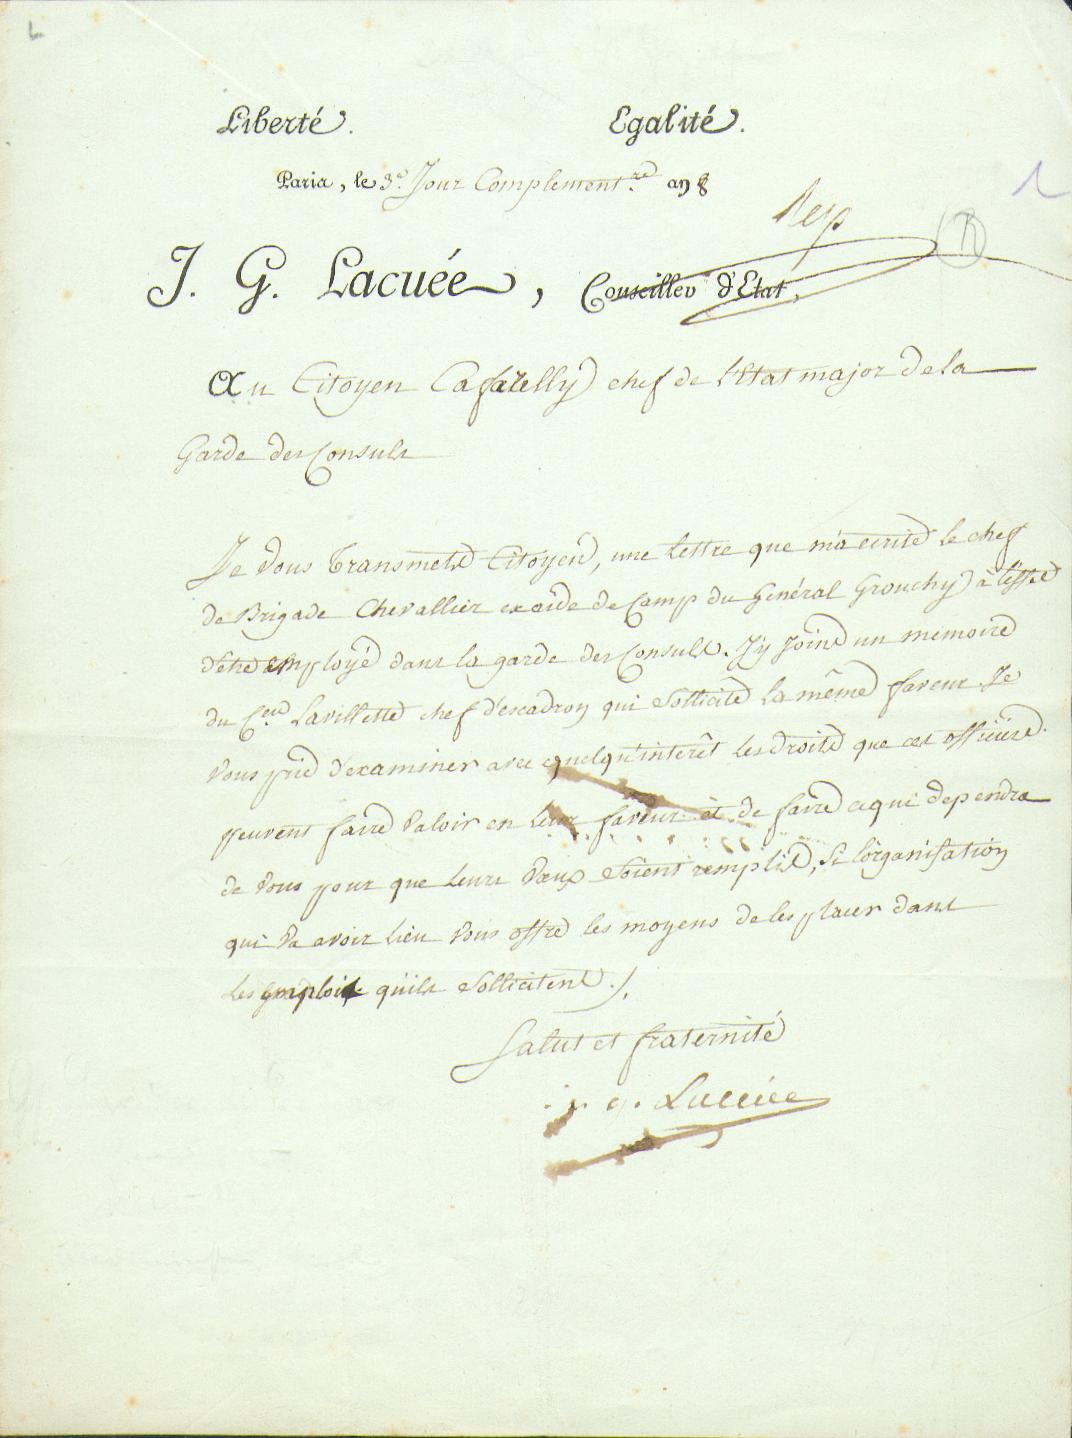 Liberté. Egalité.
Paris, le 3.e Jour Complement.re an 8
Rep
R
J. G. Lacuée, Conseiller d'Etat,
Au Citoyen Cafarelly chef de l'Etat major de la
Garde des Consuls
Je vous transmets Citoyen, une lettre que m'a ecrite le chef
de Brigade Chevallier ex aide de Camp du Général Grouchy à l'effet
d'etre employé dans la garde des Consuls. J'y joins un memoire
du C.en Lavillette chef d'escadron qui sollicite la même faveur. Je
vous prie d'examiner avec quelqu'interêt les droits que ces officiers
peuvent faire valoir en leur faveur et de faire ce qui dependra
de vous pour que leurs vœux soient remplis, si l'organisation
qui va avoir lieu vous offre les moyens de les placer dans
les emplois qu'ils sollicitent ./.
Salut et fraternité
j. g. Lacuée